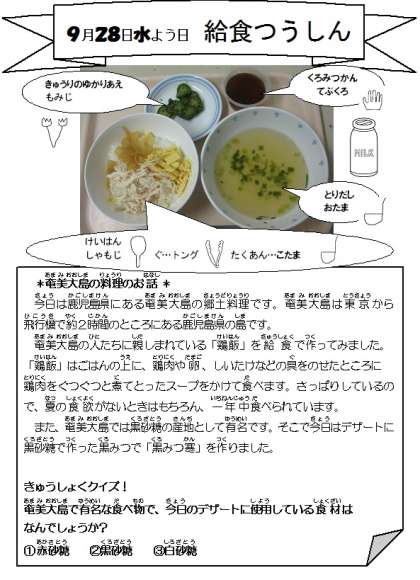 9月28日水よう日 給食つうしん
きゅうりのゆかりあえ
もみじ
くろみつかん
てぶくろ
MILK
とりだし
おたま
けいはん
しゃもじ ぐ…トング たくあん…こたま
＊奄美大島の料理のお話＊
今日は鹿児島県にある奄美大島の郷土料理です。奄美大島は東京から
飛行機で約2時間のところにある鹿児島県の島です。
奄美大島の人たちに親しまれている「鶏飯」を給食で作ってみました。
「鶏飯」はごはんの上に、鶏肉や卵、しいたけなどの具をのせたところに
鶏肉をぐつぐつと煮てとったスープをかけて食べます。さっぱりしているの
で、夏の食欲がないときはもちろん、一年中食べられています。
また、奄美大島では黒砂糖の産地として有名です。そこで今日はデザートに
黒砂糖で作った黒みつで「黒みつ寒」を作りました。
きゅうしょくクイズ！
奄美大島で有名な食べ物で、今日のデザートに使用している食材は
なんでしょうか？
①赤砂糖 ②黒砂糖 ③白砂糖